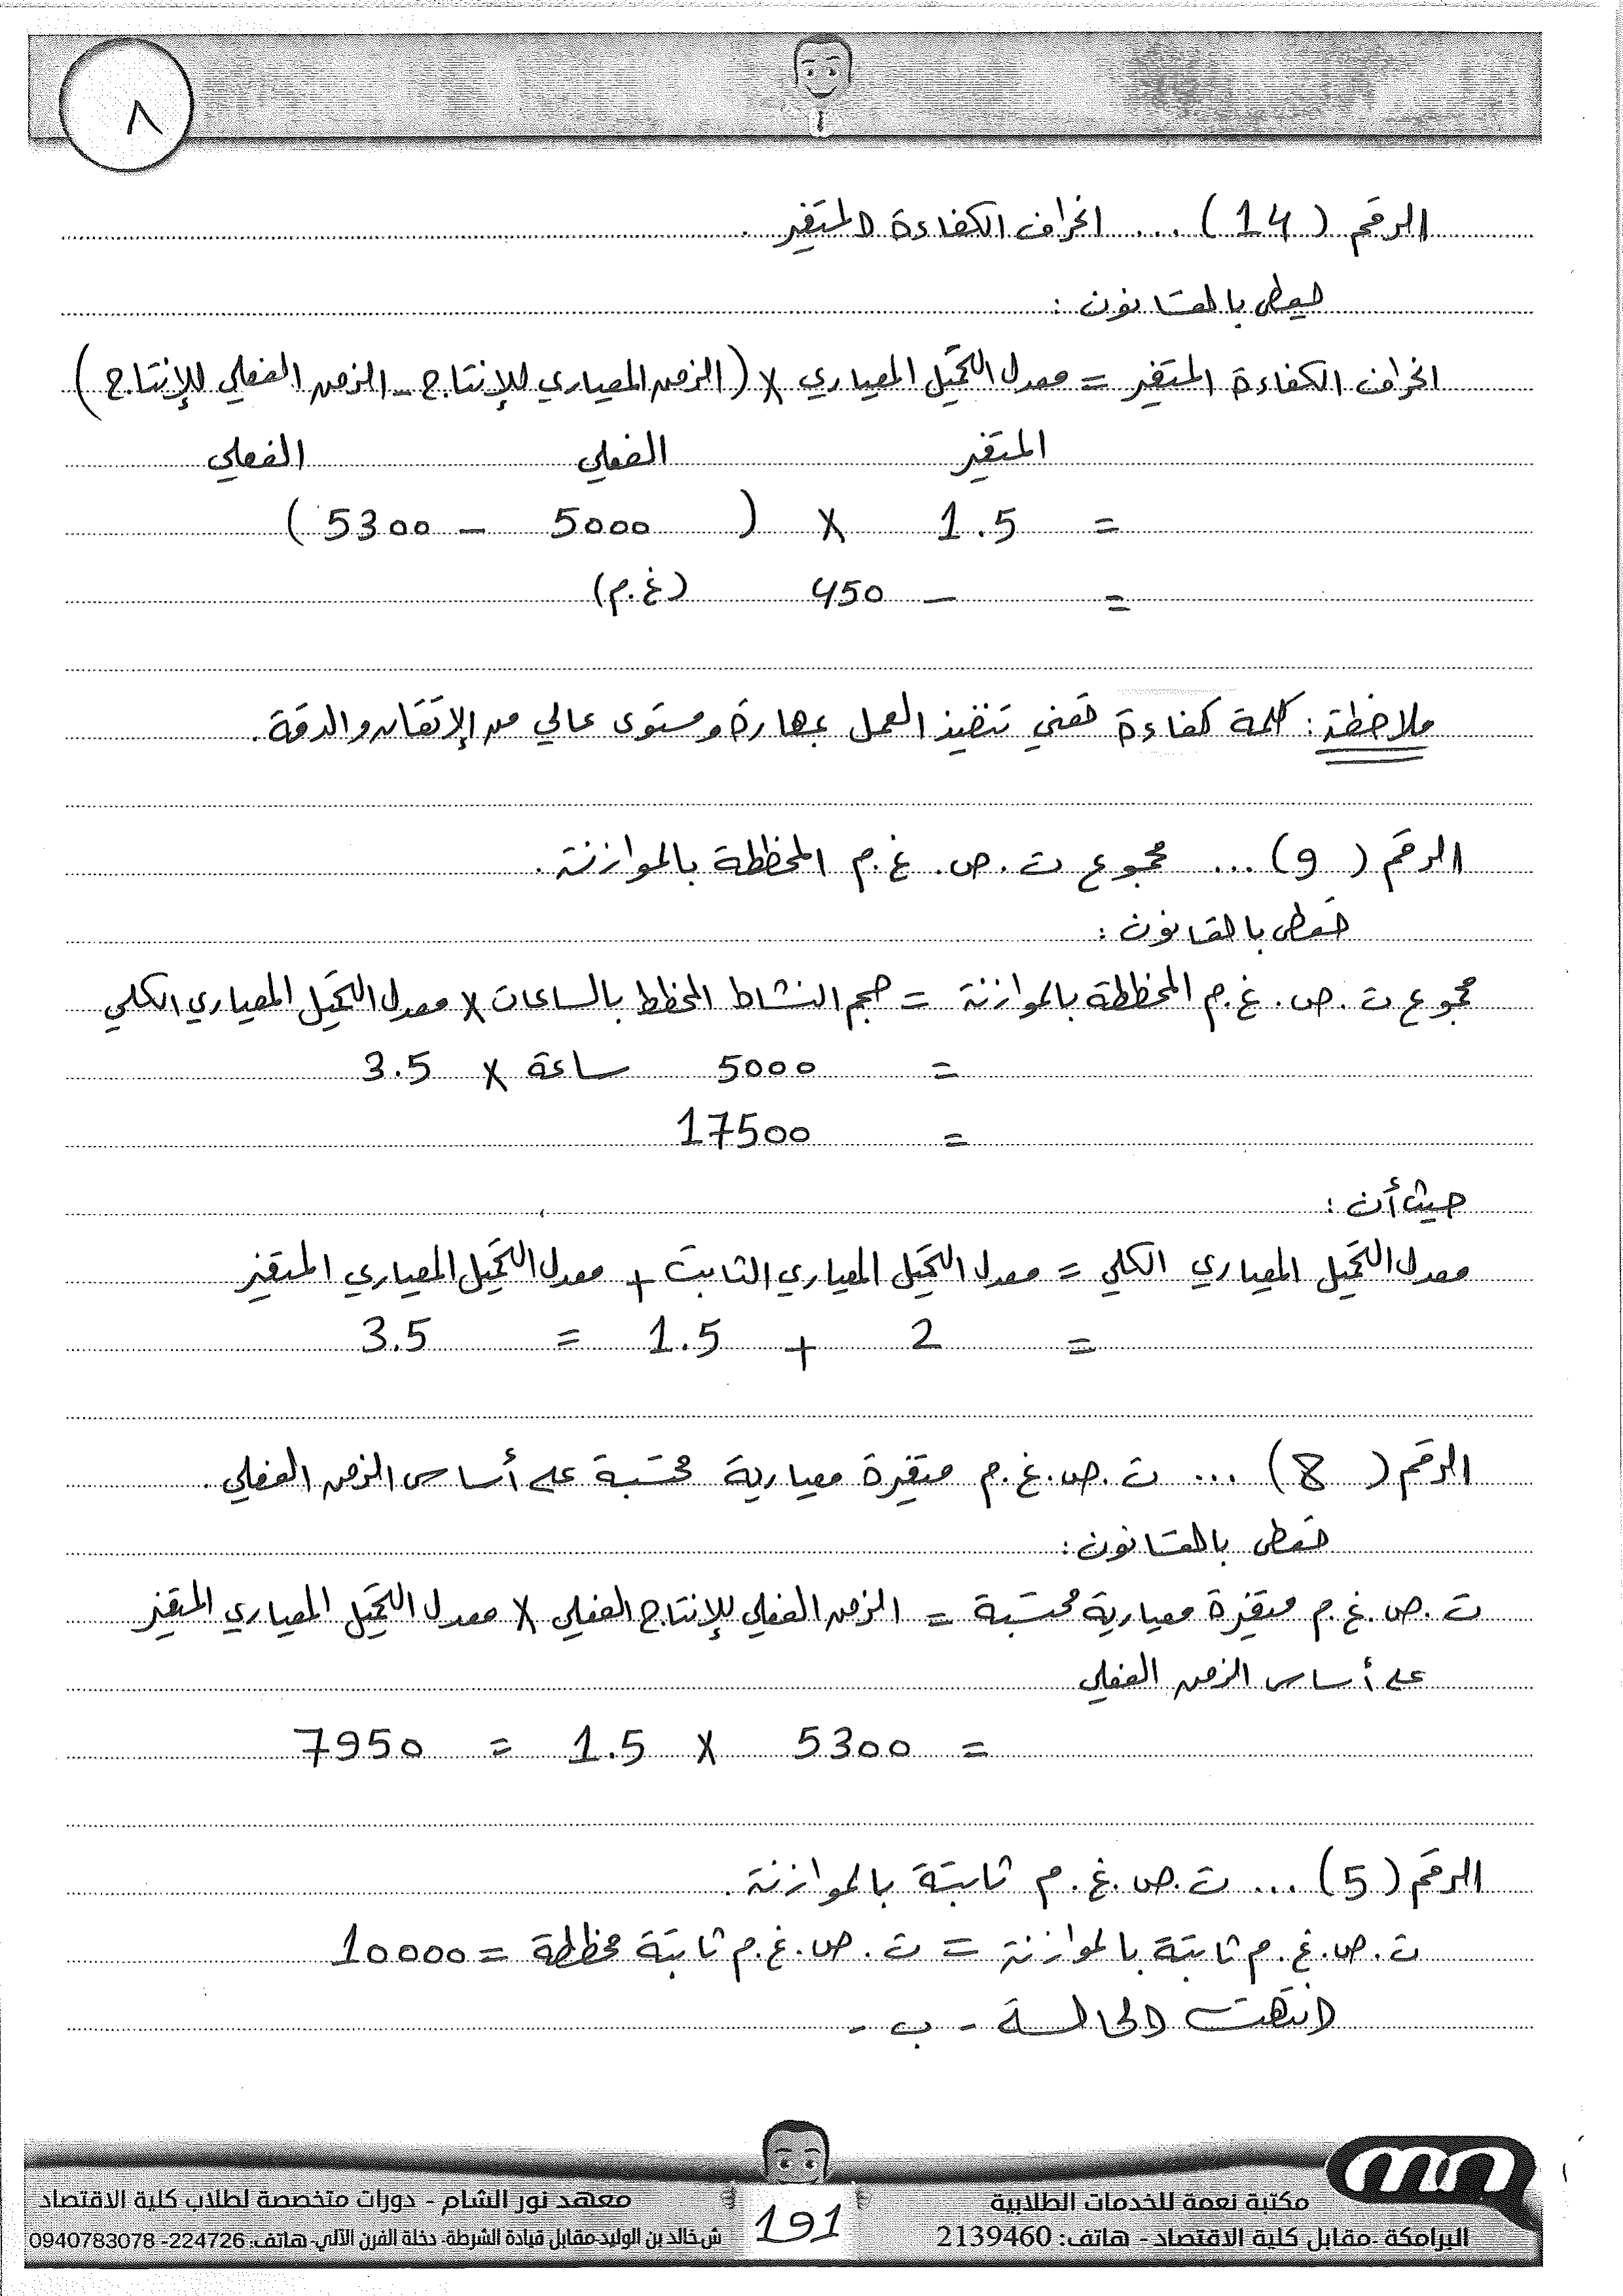 ٨
الرقم (14) ... انحراف الكفاءة المتغير.
يعطى بالقانون:
انحراف الكفاءة المتغير = معدل التحميل المعياري × (الزمن المعياري للإنتاج - الزمن الفعلي للإنتاج)
المتغير الفعلي الفعلي
= 1.5 × (5000 - 5300)
= - 450 (غ.م)
ملاحظة: كلمة كفاءة تعني تنفيذ العمل بمهارة ومستوى عالي من الإتقان والدقة.
الرقم (9) ... مجموع ت.ص.غ.م المخططة بالموازنة.
تعطى بالقانون:
مجموع ت.ص.غ.م المخططة بالموازنة = حجم النشاط المخطط بالساعات × معدل التحميل المعياري الكلي
= 5000 ساعة × 3.5
= 17500
حيث أن:
معدل التحميل المعياري الكلي = معدل التحميل المعياري الثابت + معدل التحميل المعياري المتغير
= 2 + 1.5 = 3.5
الرقم (8) ... ت.ص.غ.م متغيرة معيارية محتسبة على أساس الزمن الفعلي.
تعطى بالقانون:
ت.ص.غ.م متغيرة معيارية محتسبة = الزمن الفعلي للإنتاج الفعلي × معدل التحميل المعياري المتغير
على أساس الزمن الفعلي
= 5300 × 1.5 = 7950
الرقم (5) ... ت.ص.غ.م ثابتة بالموازنة.
ت.ص.غ.م ثابتة بالموازنة = ت.ص.غ.م ثابتة مخططة = 10000
انتهت الحالة - ب -
مكتبة نعمة للخدمات الطلابية
البرامكة -مقابل كلية الاقتصاد - هاتف: 2139460
191
معهد نور الشام - دورات متخصصة لطلاب كلية الاقتصاد
ش خالد بن الوليد-مقابل قيادة الشرطة- دخلة الفرن الآلي- هاتف: 224726- 0940783078